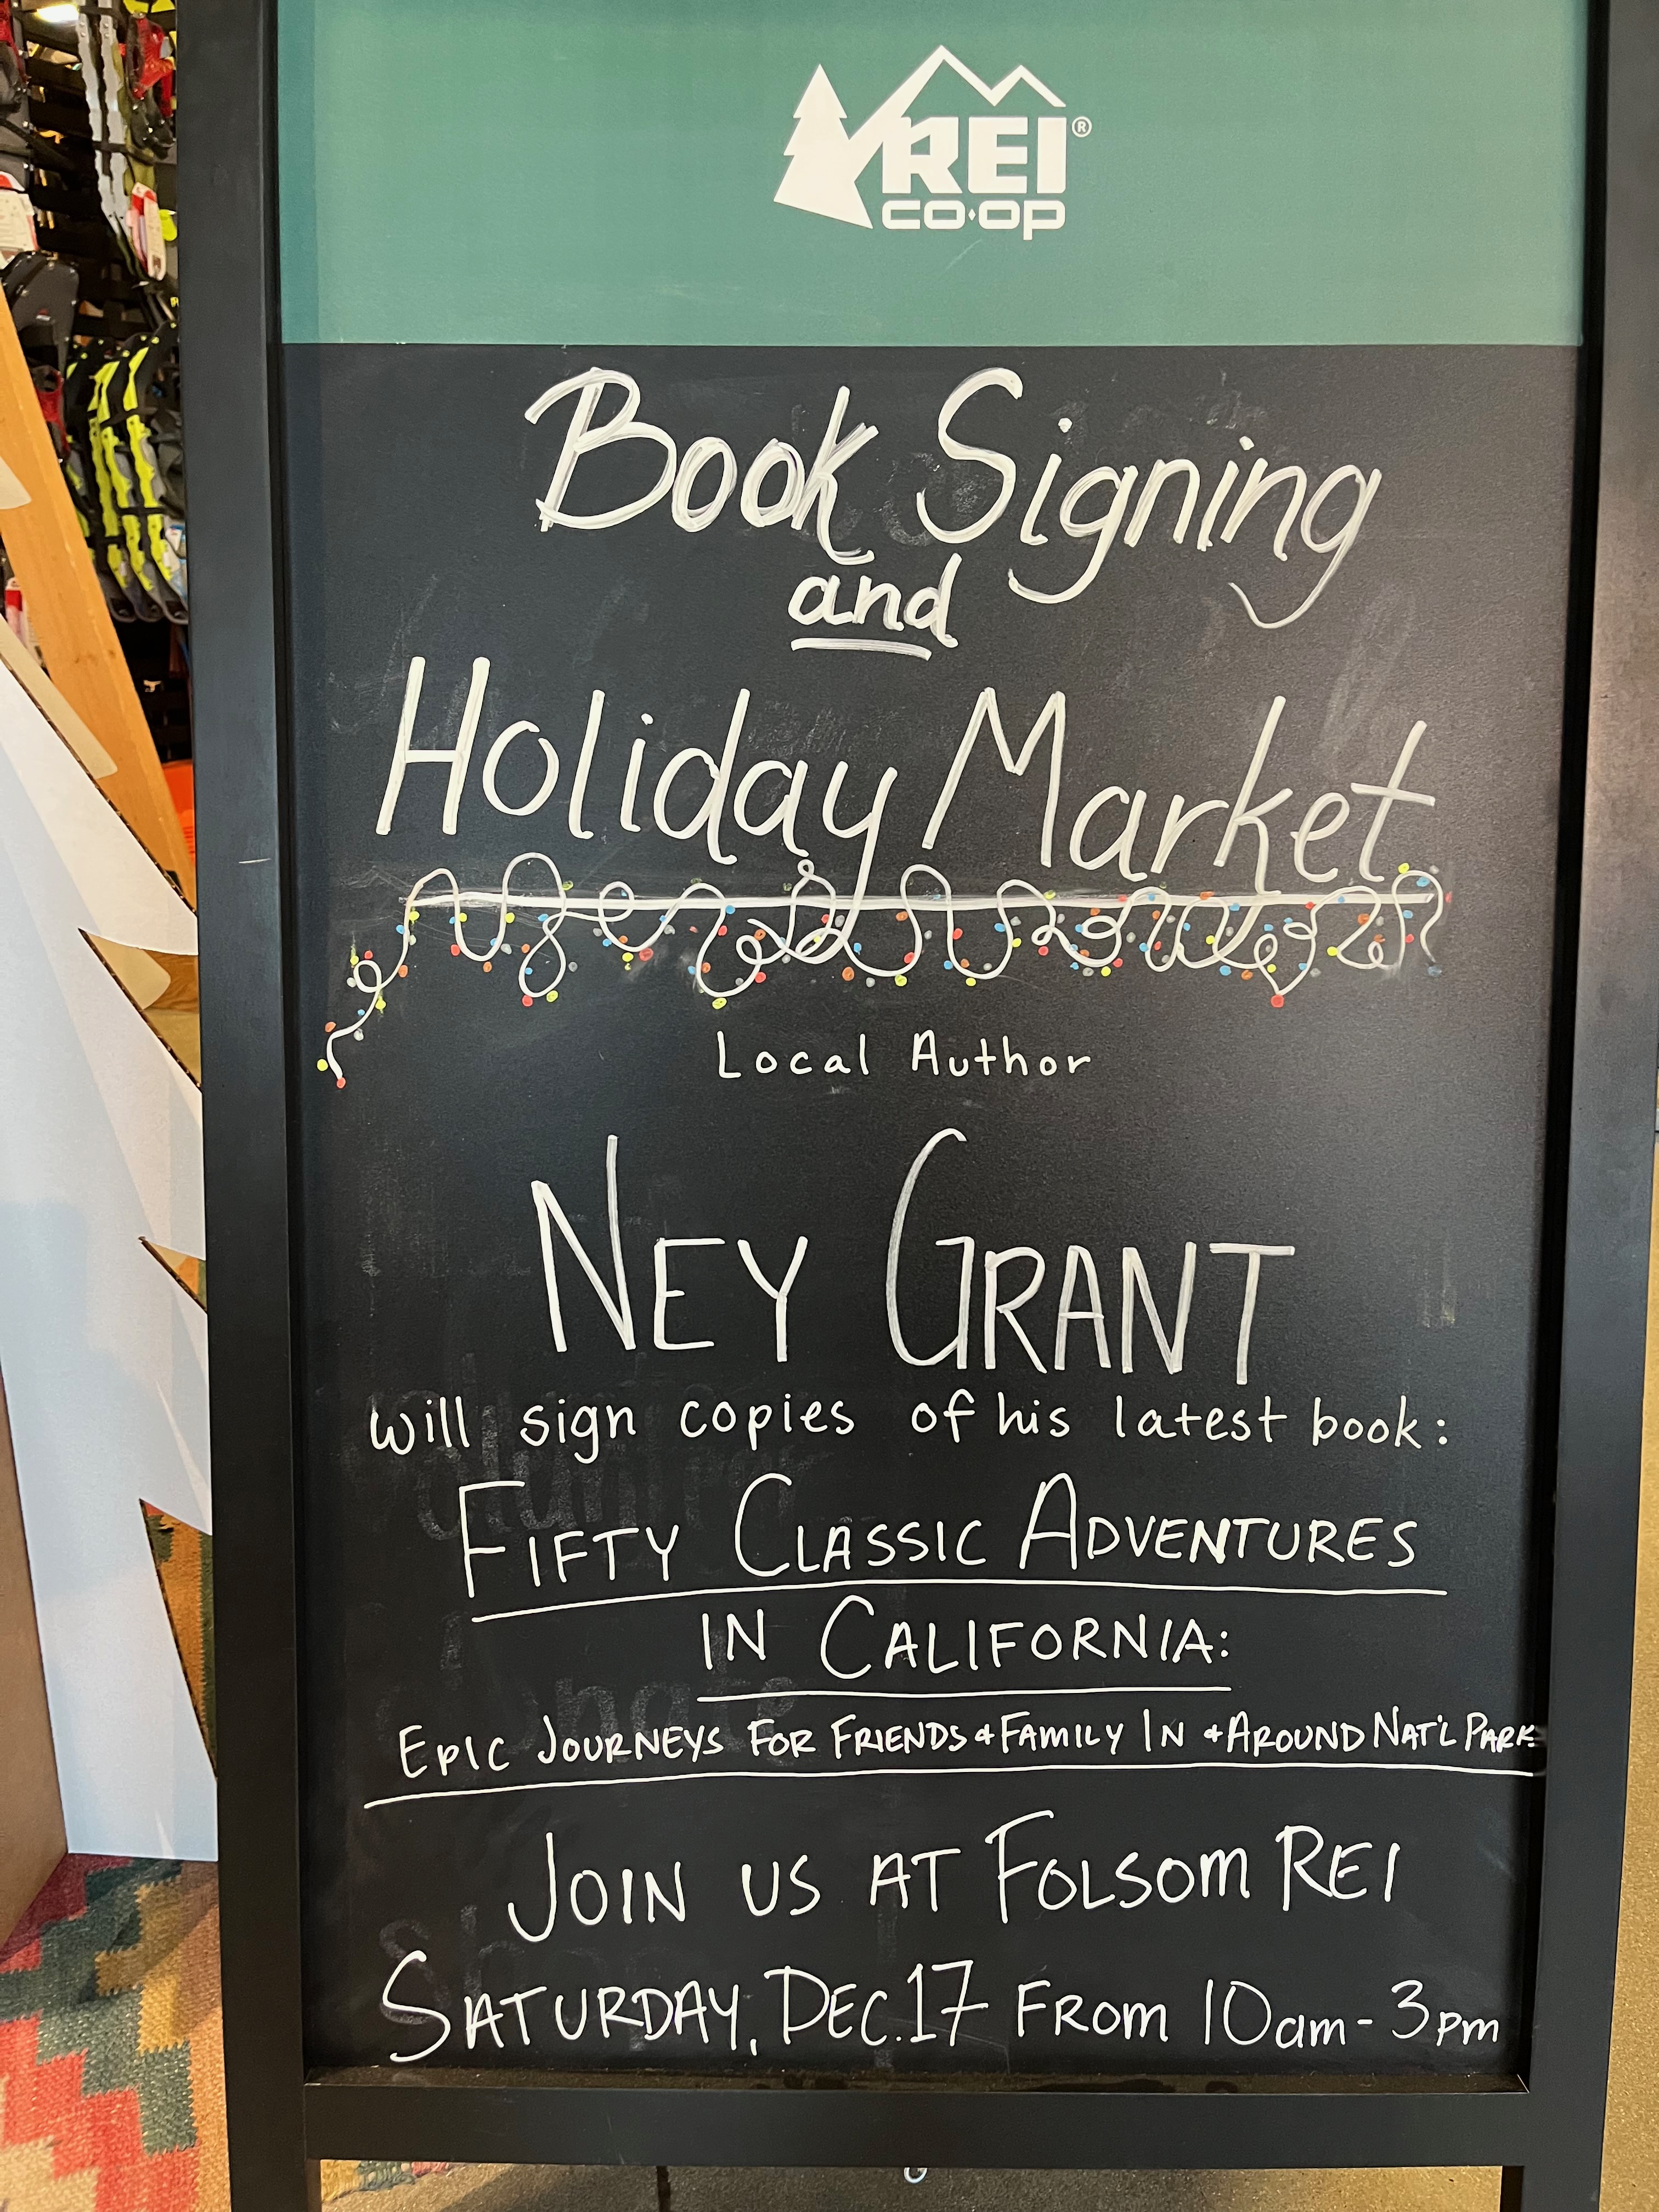 REI®
CO·OP
Book Signing
and
Holiday Market
Local Author
NEY GRANT
will sign copies of his latest book:
FIFTY CLASSIC ADVENTURES
IN CALIFORNIA:
EPIC JOURNEYS FOR FRIENDS & FAMILY IN & AROUND NAT'L PARKS
JOIN US AT FOLSOM REI
SATURDAY, DEC. 17 FROM 10am - 3pm